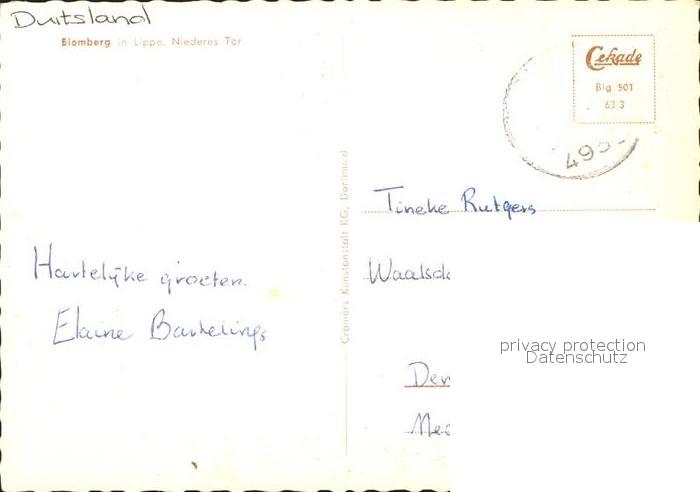 Duitsland
Blomberg in Lippe, Niederes Tor
Cekade
Blg 501
63 3
Cramers Kunstanstalt KG, Dortmund
Tineke Rutgers
Hartelijke groeten.
Elaine Bartelings
privacy protection
Datenschutz